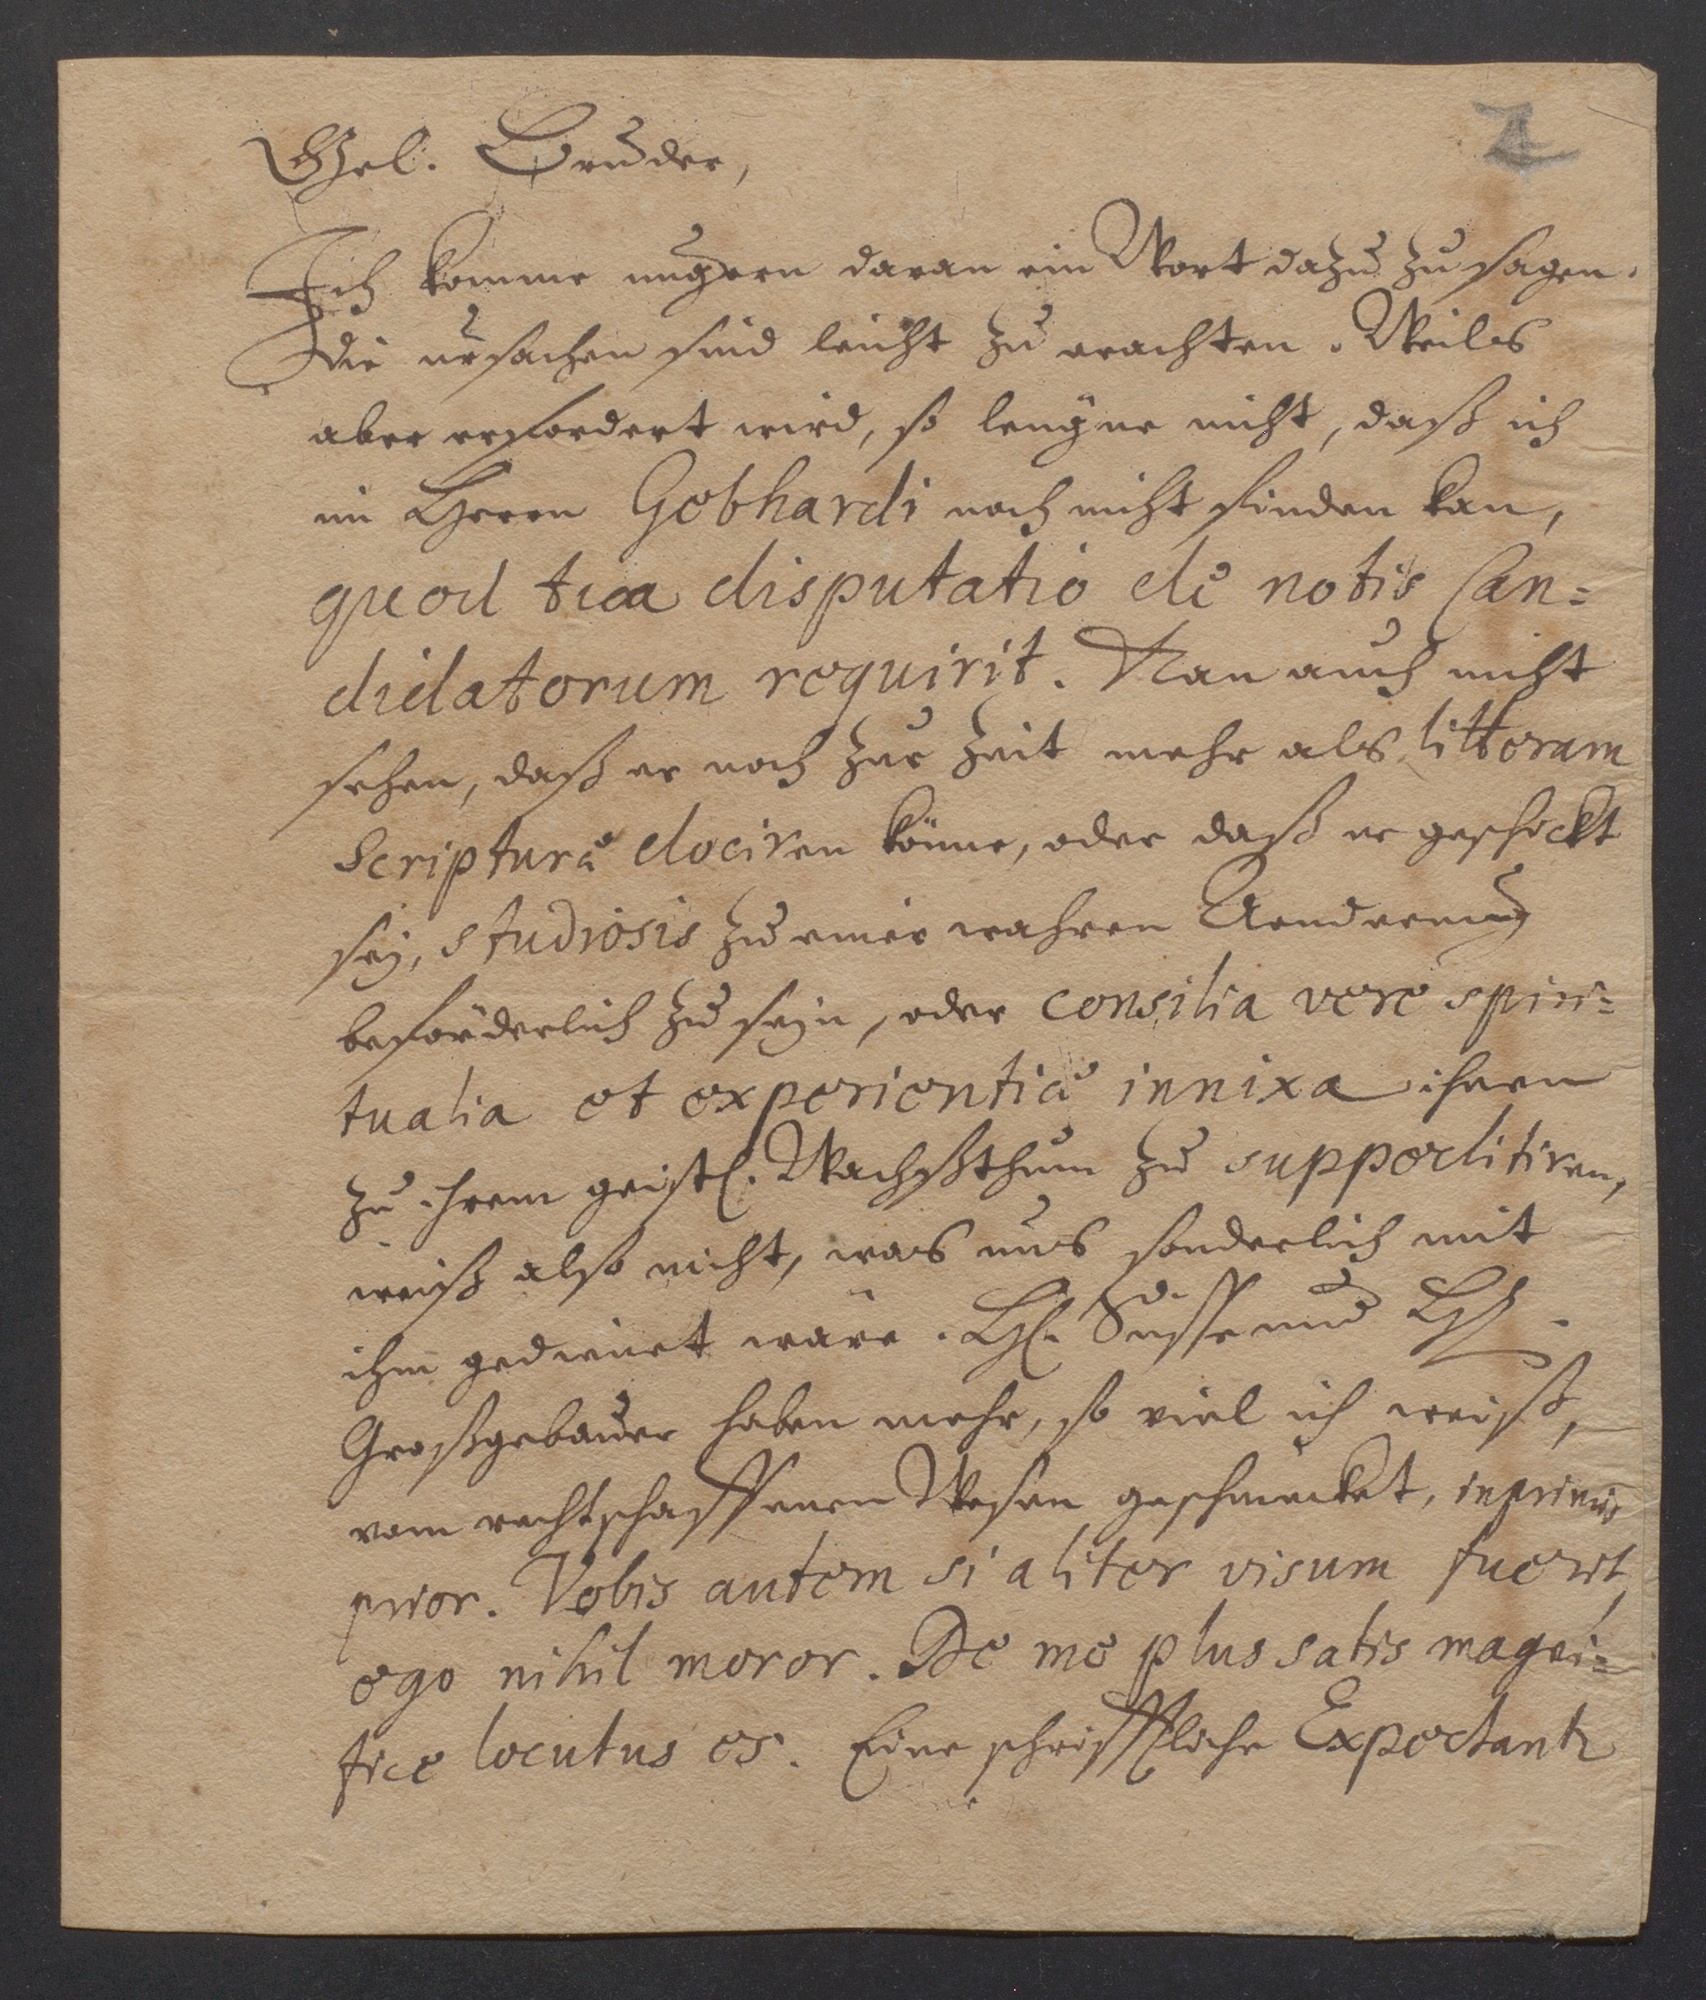 2
Gel. Bruder,
Ich komme ungern daran ein Wort dazu zu sagen.
Die ursachen sind leicht zu erachten. Weils
aber erfordert wird, so leugne nicht, daß ich
im Herrn Gebhardi noch nicht finden kan,
quod tua disputatio de notis Can=
didatorum requirit. Kan auch nicht
sehen, daß er noch zur Zeit mehr als litteram
Scripturæ dociren könne, oder daß er geschickt
sey, studiosis zu einer wahren Aenderung
beförderlich zu seyn, oder consilia vere spiri=
tualia et experientiæ innixa ihnen
zu ihrem geistl. Wachsthum zu suppeditiren,
weiß also nicht, was uns sonderlich mit
ihm gedienet wäre. H. Susse und H.
Großgebauer haben mehr, so viel ich weiß,
vom rechtschaffenen Wesen geschmecket, inprimis
prior. Vobis autem si aliter visum fuerit,
ego nihil moror. De me plus satis magni=
fice locutus es. Eine schrifftliche Expectantz